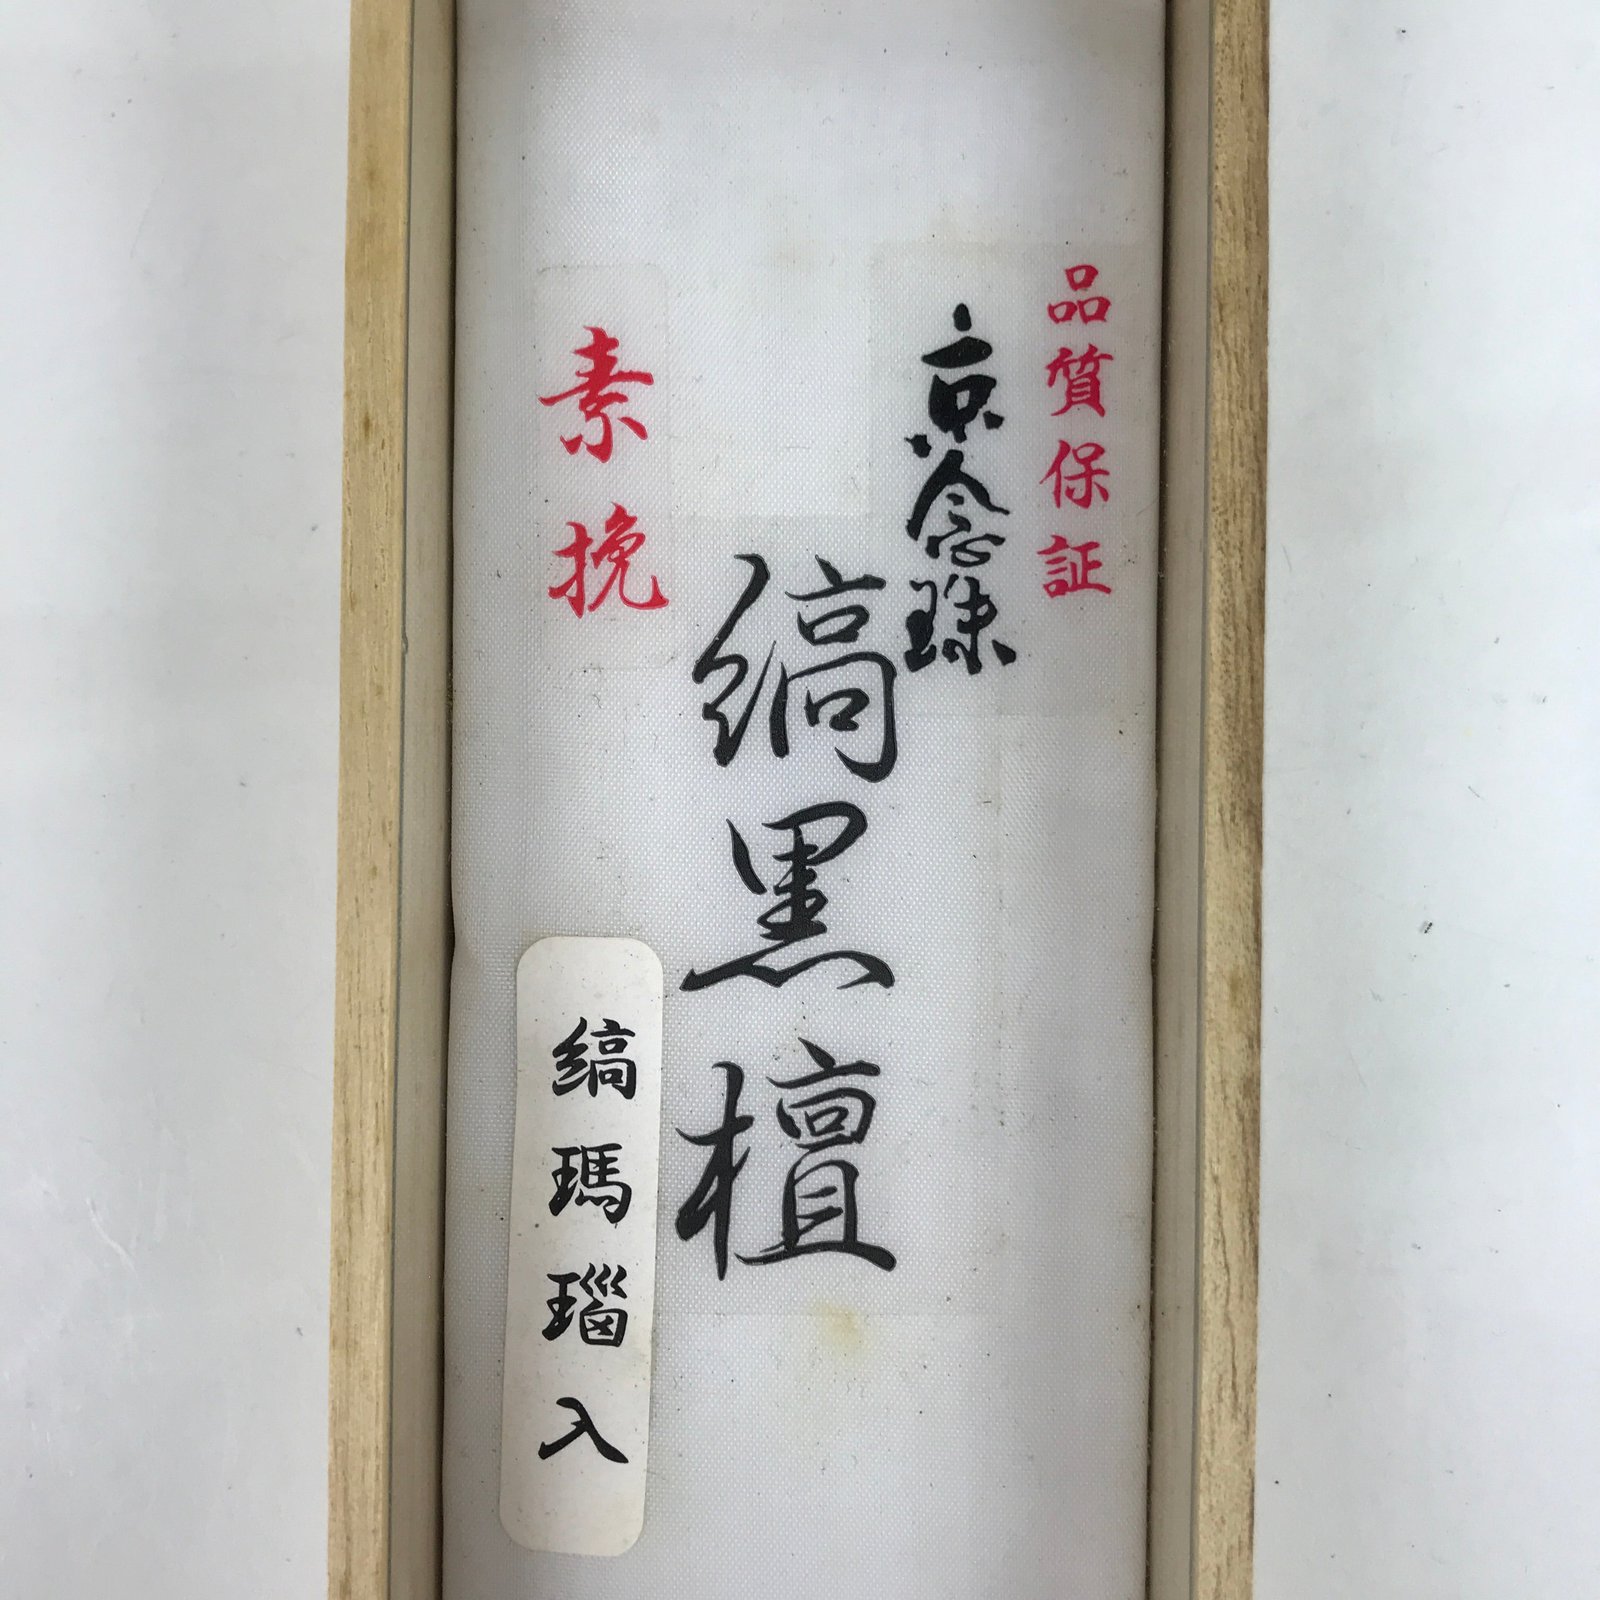 品質保証
京念珠
縞黒檀
素挽
縞瑪瑙入